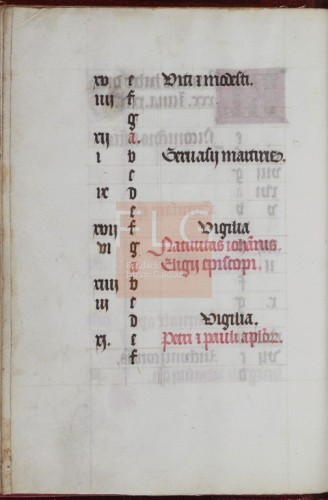 xv e Viti ⁊ modesti.
iiij f
g
xij a.
i b Geruasij martiris.
c
ix d
e
xvij f Vigilia
vi g Natiuitas iohānis.
a Eligij episcopi.
xiiij b
iij c
d Vigilia.
xi. e Petri ⁊ pauli aplōꝝ.
f
FLG